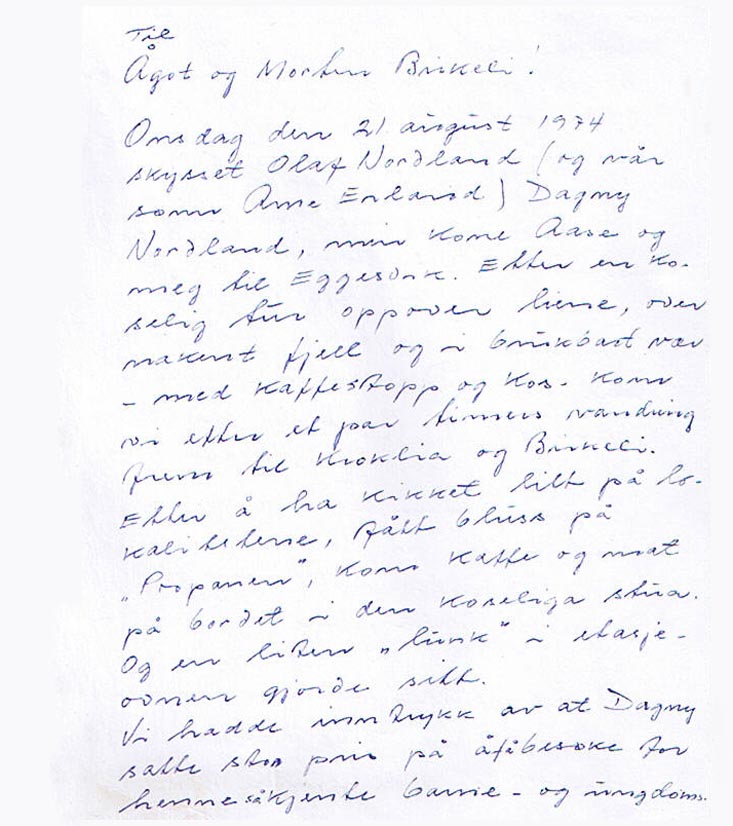 Til
Ågot og Morten Birkeli!
Onsdag den 21 august 1974
skysset Olaf Nordland (og vår
sønn Arne Erland) Dagny
Nordland, min kone Aase og
meg til Eggesvik. Etter en ko-
selig tur oppover liene, over
nakent fjell og i brukbart vær
- med kaffestopp og kos - kom
vi etter et par timers vandring
frem til Kroklia og Birkeli.
Etter å ha kikket litt på lo-
kalitetene, fått bluss på
„Propanen", kom kaffe og mat
på bordet i den koselige stua.
Og en liten „lunk" i etasje-
ovnen gjorde sitt.
Vi hadde inntrykk av at Dagny
satte stor pris på å få besøke før
henne så kjente barne- og ungdoms.